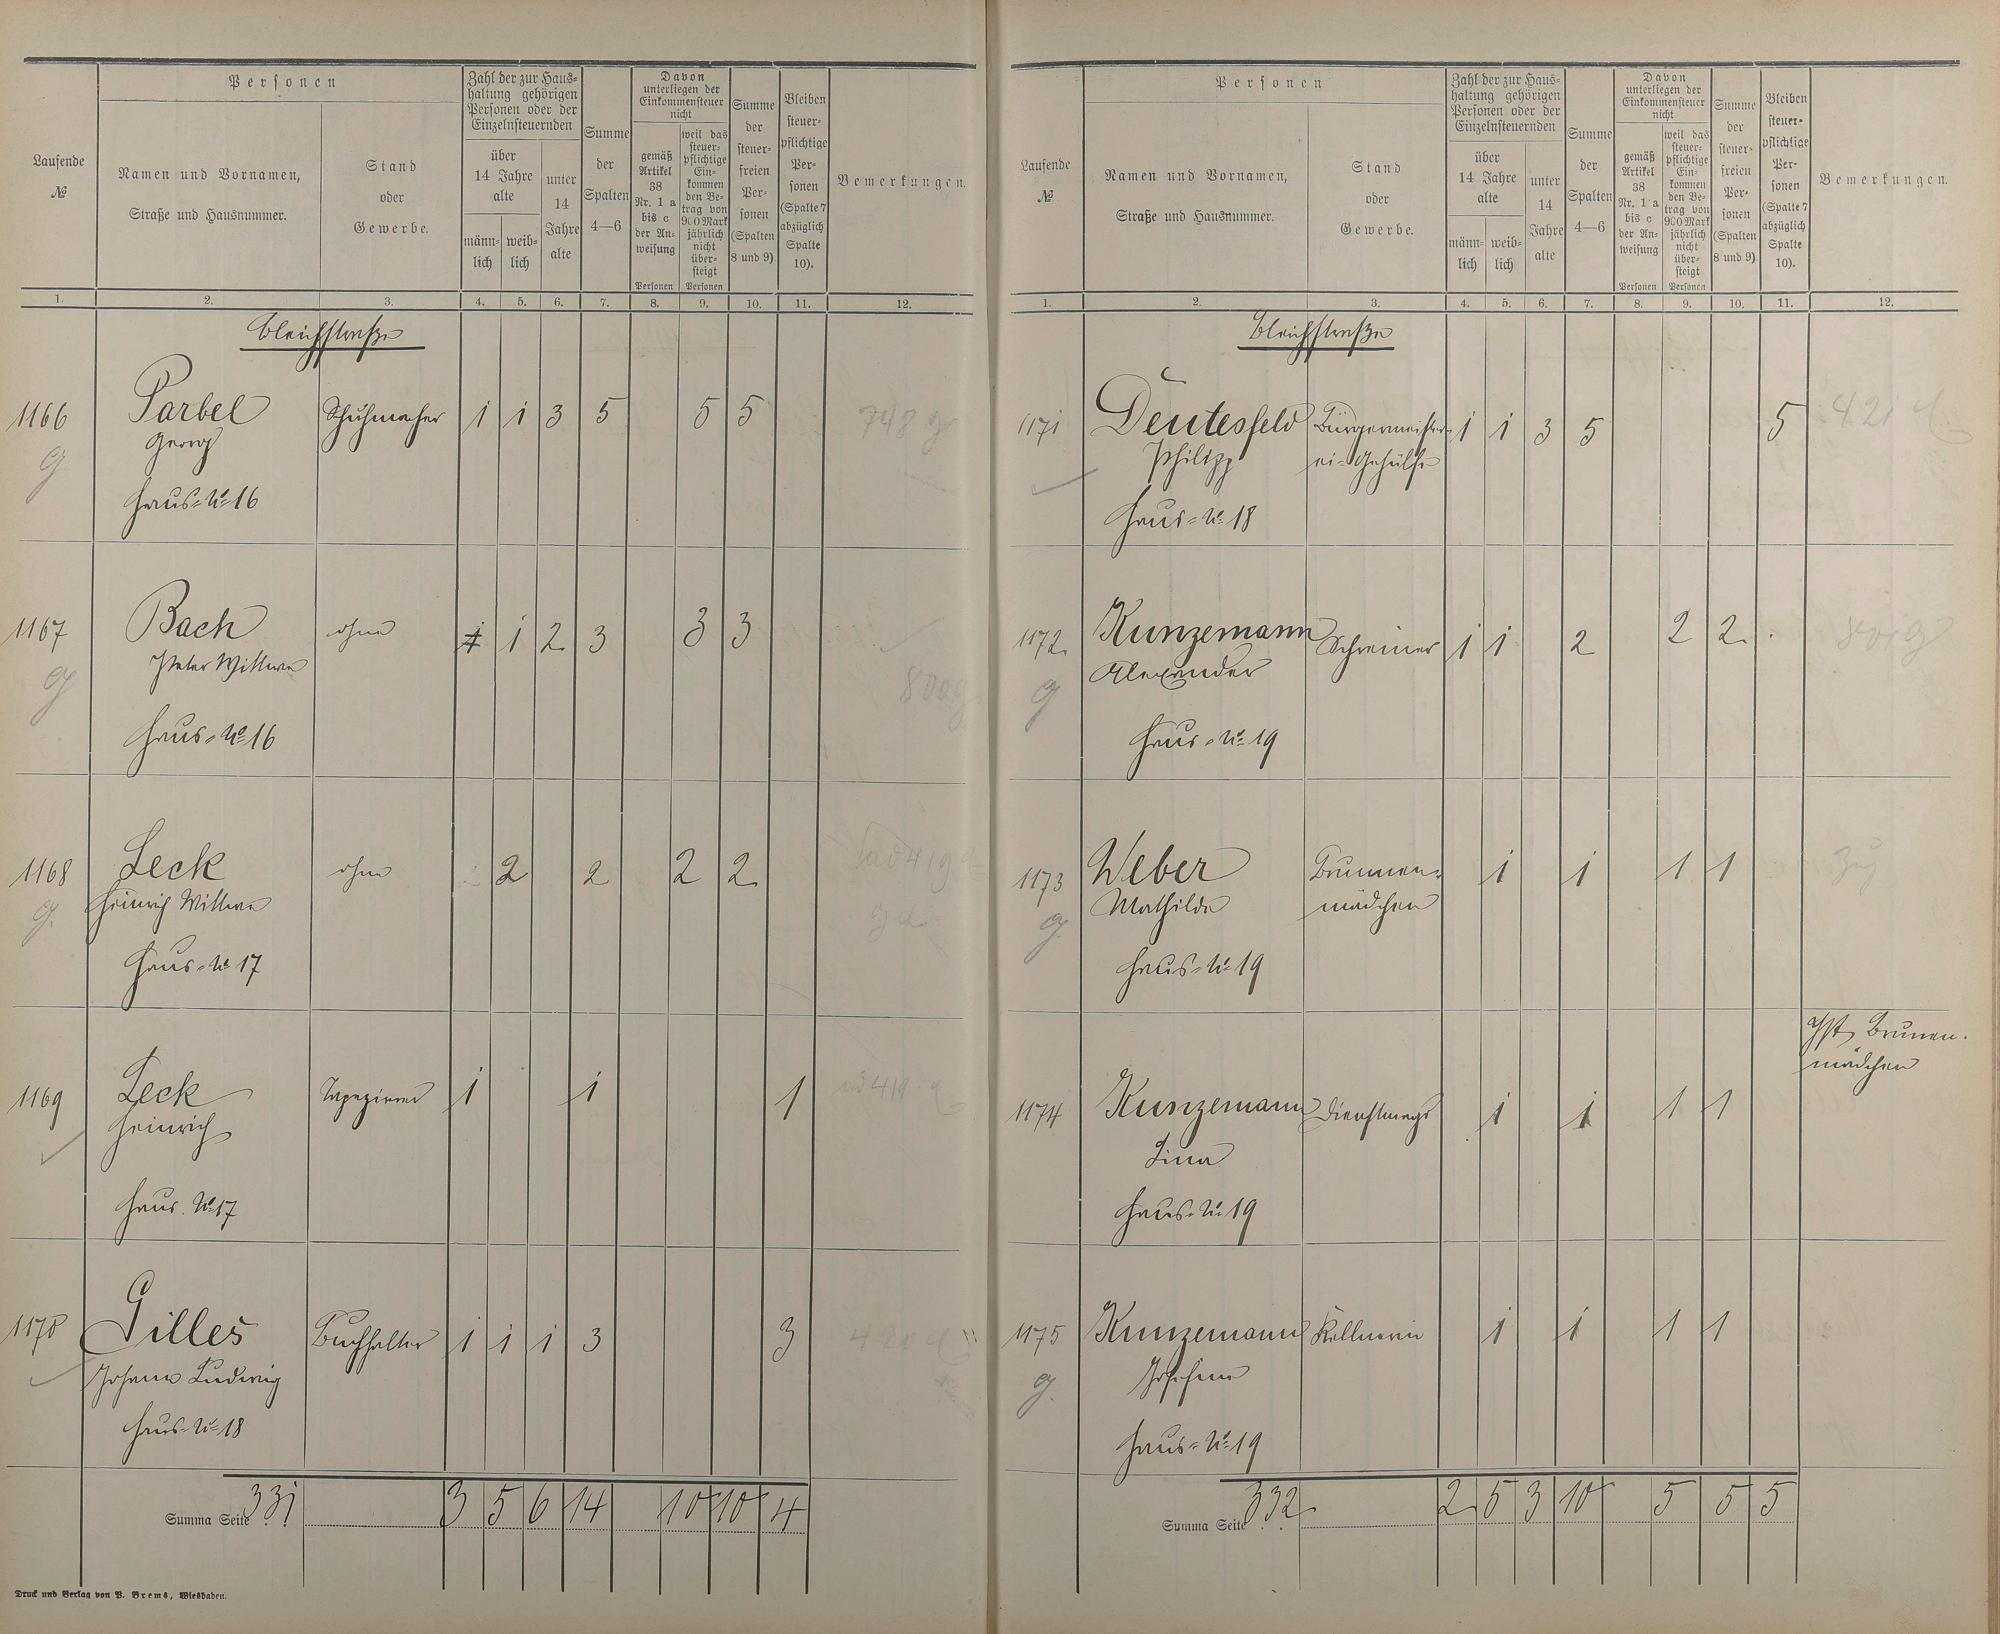 Laufende
№
Personen
Namen und Vornamen,
Straße und Hausnummer.
Stand
oder
Gewerbe.
Zahl der zur Haus-
haltung gehörigen
Personen oder der
Einzelnsteuernden
über
14 Jahre
alte
männ-
lich
weib-
lich
unter
14
Jahre
alte
Summe
der
Spalten
4—6
Davon
unterliegen der
Einkommensteuer
nicht
gemäß
Artikel
38
Nr. 1 a
bis c
der An-
weisung
Personen
weil das
steuer-
pflichtige
Ein-
kommen
den Be-
trag von
900 Mark
jährlich
nicht
über-
steigt
Personen
Summe
der
steuer-
freien
Per-
sonen
(Spalten
8 und 9)
Bleiben
steuer-
pflichtige
Per-
sonen
(Spalte 7
abzüglich
Spalte
10).
Bemerkungen.
1. 2. 3. 4. 5. 6. 7. 8. 9. 10. 11. 12.
Bleichstraße
1166 Parbel Schuhmacher 1 1 3 5 5 5 748 g
g Georg
Haus-No 16
1167 Bach ohne 1 1 2 3 3 3
g Peter Wittwe 800 g
Haus-No 16
1168 Leck ohne 2 2 2 2
g. Heinrich Wittwe
Haus-No 17
1169 Leck Tapezierer 1 1 1
Heinrich
Haus. No 17
1170 Gilles Buchhalter 1 1 1 3 3
Johann Ludwig
Haus-No 18
Summa Seite 331 3 5 6 14 10 10 4
Druck und Verlag von P. Brems, Wiesbaden.
Laufende
№
Personen
Namen und Vornamen,
Straße und Hausnummer.
Stand
oder
Gewerbe.
Zahl der zur Haus-
haltung gehörigen
Personen oder der
Einzelnsteuernden
über
14 Jahre
alte
männ-
lich
weib-
lich
unter
14
Jahre
alte
Summe
der
Spalten
4—6
Davon
unterliegen der
Einkommensteuer
nicht
gemäß
Artikel
38
Nr. 1 a
bis c
der An-
weisung
Personen
weil das
steuer-
pflichtige
Ein-
kommen
den Be-
trag von
900 Mark
jährlich
nicht
über-
steigt
Personen
Summe
der
steuer-
freien
Per-
sonen
(Spalten
8 und 9)
Bleiben
steuer-
pflichtige
Per-
sonen
(Spalte 7
abzüglich
Spalte
10).
Bemerkungen.
1. 2. 3. 4. 5. 6. 7. 8. 9. 10. 11. 12.
Bleichstraße
1171 Deutesfeld Bürgermeister- 1 1 3 5 5 421
Philipp ei-Gehülfe
Haus-No 18
1172 Kunzemann Schreiner 1 1 2 2 2 801 g
g Alexander
Haus-No 19
1173 Weber Brunnen- 1 1 1 1
g. Mathilde mädchen
Haus-No 19
Ist Brunnen-
mädchen
1174 Kunzemann Dienstmagd 1 1 1 1
Lina
Haus-No 19
1175 Kunzemann Kellnerin 1 1 1 1
g. Josefine
Haus-No 19
Summa Seite 332 2 5 3 10 5 5 5